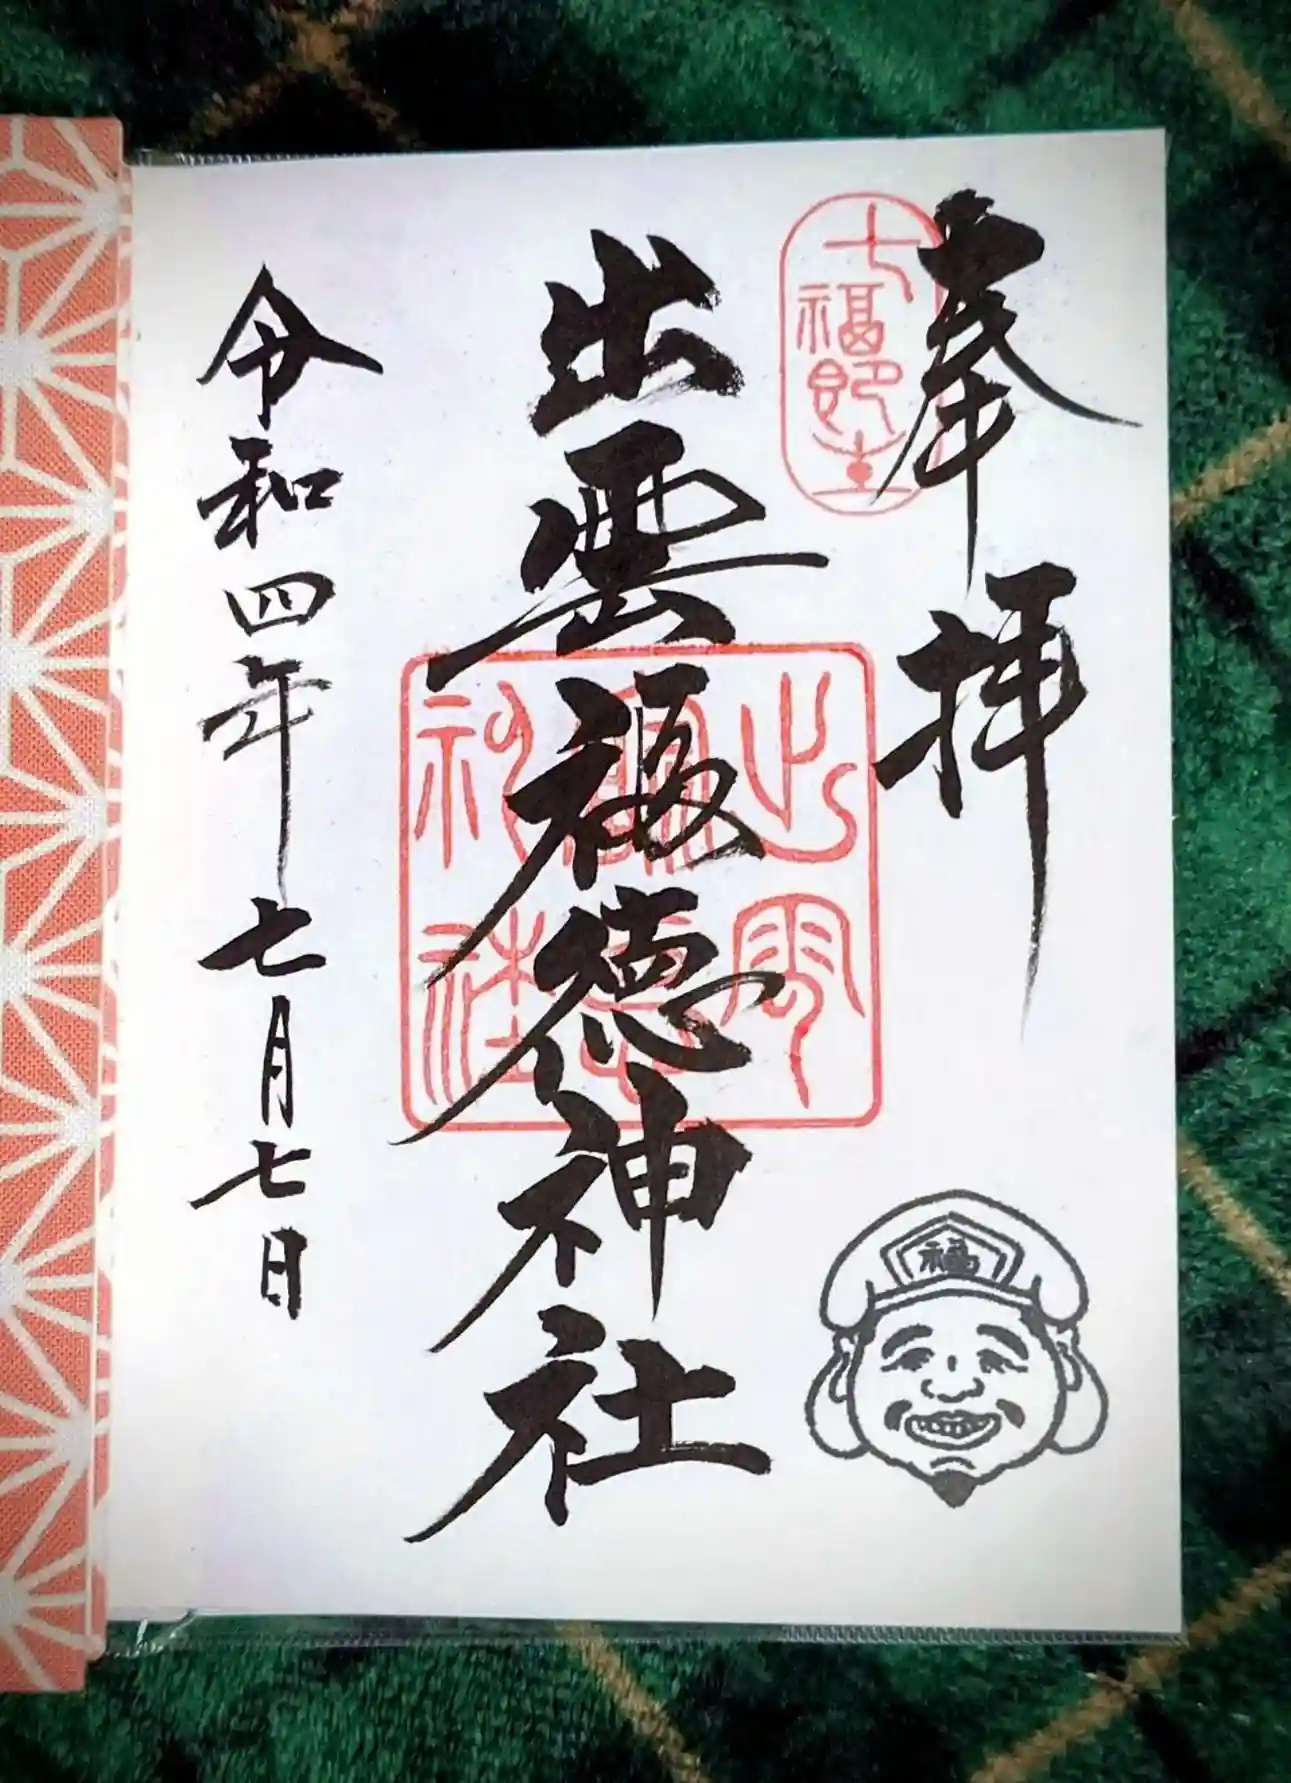 奉拝
七福即生
出雲福德神社
出雲
福德
神社
令和四年七月七日
福